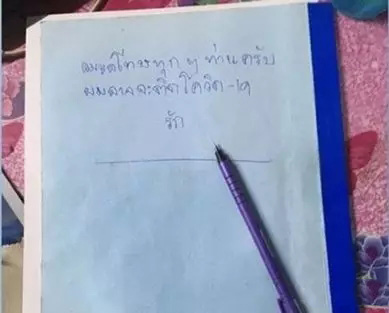 ผมขอโทษทุก ๆ ท่านครับ
ผมอาจจะติดโควิด-19
รัก